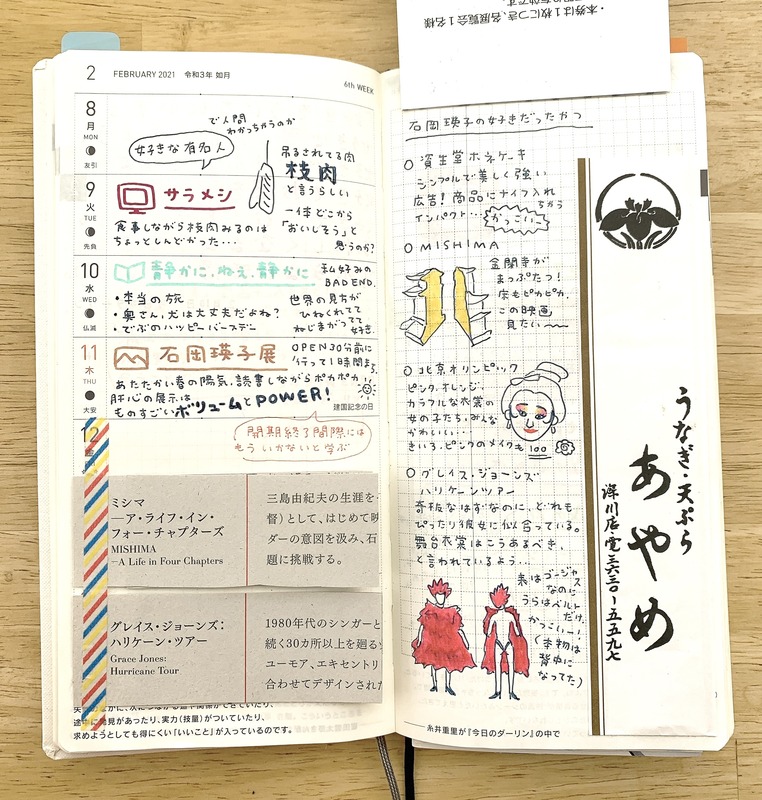 2
FEBRUARY 2021 令和3年 如月
6th WEEK
8
月
MON
友引
好きな有名人
で人間
わかっちゃうのか
吊るされてる肉
枝肉
と言うらしい
一体どこから
「おいしそう」と
思うのか?
9
火
TUE
先負
サラメシ
食事しながら枝肉みるのは
ちょっとしんどかった…
10
水
WED
仏滅
静かに、ねぇ、静かに
・本当の旅
・奥さん、犬は大丈夫だよね?
・でぶのハッピーバースデー
私好みの
BAD END.
世界の見方が
ひねくれてて
ねじまがってて
好き.
11
木
THU
大安
石岡瑛子展
OPEN30分前に
行って1時間まち
あたたかい春の陽気.読書しながらポカポカ
肝心の展示は
ものすごいボリュームとPOWER!
建国記念の日
12
会期終了間際には
もういかないと学ぶ
ミシマ
―ア・ライフ・イン・
フォー・チャプターズ
MISHIMA
―A Life in Four Chapters
三島由紀夫の生涯を
督)として、はじめて映
ダーの意図を汲み、石
題に挑戦する。
グレイス・ジョーンズ:
ハリケーン・ツアー
Grace Jones:
Hurricane Tour
1980年代のシンガーと
続く30カ所以上を廻る
ユーモア、エキセントリ
合わせてデザインされた
途中に発見があったり、実力(技量)がついていたり、
求めようとしても得にくい「いいこと」が入っているのです。
・本券は1枚につき、各展覧会1名様
石岡瑛子の好きだったやつ
○ 資生堂ホネケーキ
シンプルで美しく強い
広告!商品にナイフ入れ
ちゃう
インパクト…
かっこいい〜
○ MISHIMA
金閣寺が
まっぷたつ!
床もピカピカ.
この映画
見たい〜
○ 北京オリンピック
ピンク.オレンジ.
カラフルな衣裳の
女の子たち.みんな
かわいい…
きいろ.ピンクのメイクも100
○ グレイス・ジョーンズ
ハリケーンツアー
奇抜なはずなのに、どれも
ぴったり彼女に似合っている。
舞台衣裳はこうあるべき、
と言われているよう…
表はゴージャス
なのに
うらはベルト
だけ.
かっこいー!
(本物は
背中に
なってた)
糸井重里が『今日のダーリン』の中で
うなぎ・天ぷら
あやめ
深川店・電三六三〇-五五九七